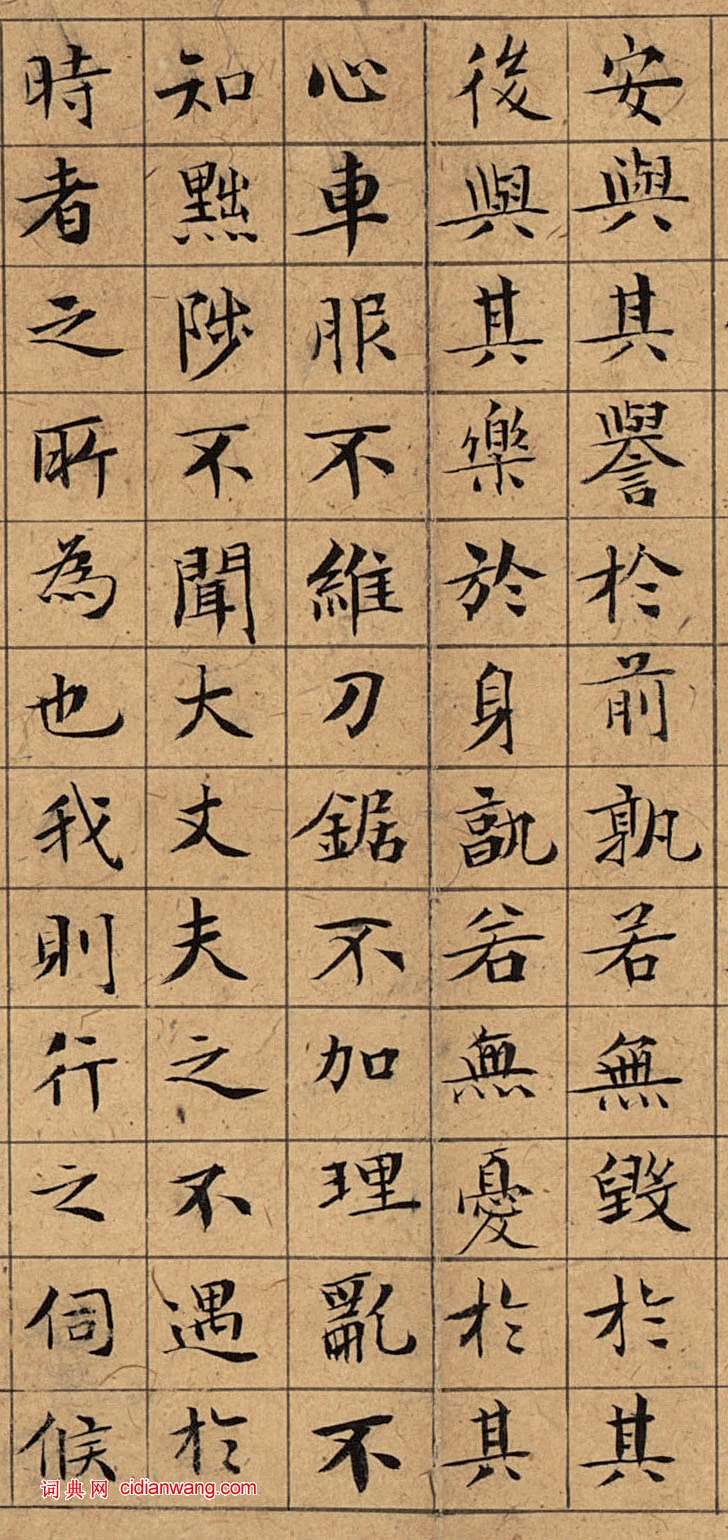 安與其譽於前孰若無毀於其
後與其樂於身孰若無憂於其
心車服不維刀鋸不加理亂不
知黜陟不聞大丈夫之不遇於
時者之所為也我則行之伺候
词典网 cidianwang.com